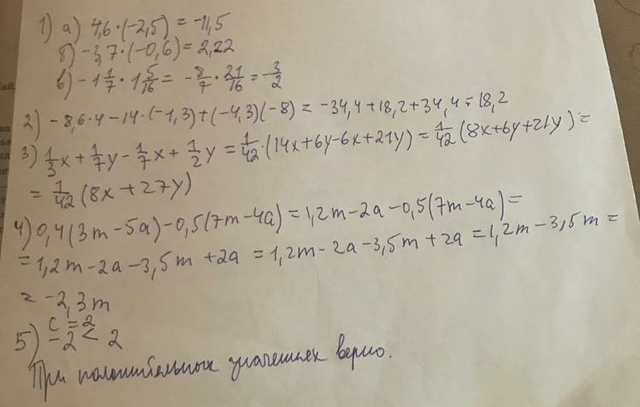 1) а) 4,6·(-2,5) = -11,5
б) -3,7·(-0,6) = 2,22
в) -1 1/7 · 1 5/16 = -8/7 · 21/16 = -3/2
2) -8,6·4-14·(-1,3)+(-4,3)(-8) = -34,4+18,2+34,4=18,2
3) 1/3x + 1/7y - 1/7x + 1/2y = 1/42·(14x+6y-6x+21y) = 1/42(8x+6y+21y) =
= 1/42(8x+27y)
4) 0,4(3m-5a)-0,5(7m-4a) = 1,2m-2a-0,5(7m-4a) =
= 1,2m-2a-3,5m+2a = 1,2m-2a-3,5m+2a = 1,2m-3,5m =
= -2,3m
c = 2
5) -2 < 2
При положительных значениях верно.